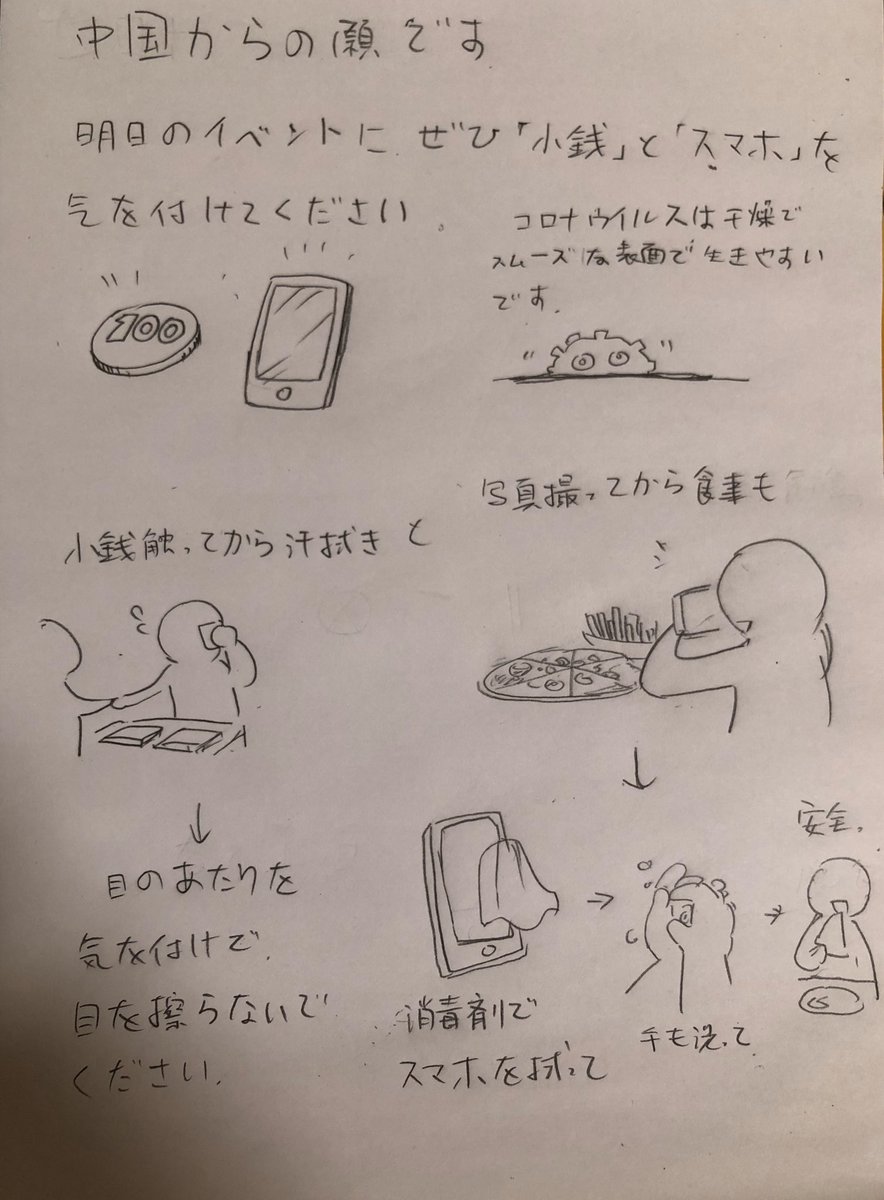 中国からの願です
明日のイベントに ぜひ「小銭」と「スマホ」を
気を付けてください。
コロナウイルスは干燥で
スムーズな表面で生きやすい
です.
100
小銭触ってから汗拭きと
写真撮ってから食事も
目のあたりを
気を付けで.
目を擦らないで
ください.
消毒剤で
スマホを拭って
手も洗って
安全.